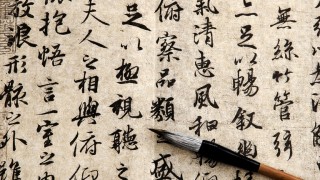 無絲竹管弦
足以暢叙幽
氣清惠風和暢
俯察品類之盛
足以極視聽之
夫人之相與俯仰
懷抱悟言一室之內
放浪形骸之外雖